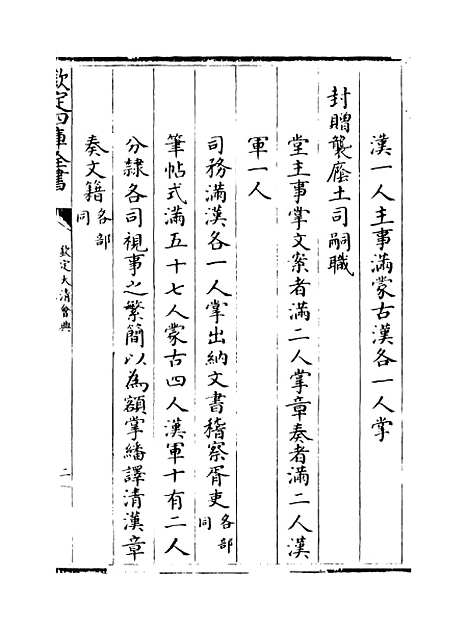 漢一人主事滿蒙古漢各一人掌
封贈襲廕土司嗣職
堂主事掌文案者滿二人掌章奏者滿二人漢
軍一人
司務滿漢各一人掌出納文書稽察胥吏各部同
筆帖式滿五十七人蒙古四人漢軍十有二人
分隸各司視事之繁簡以為額掌繙譯清漢章
奏文籍各部同
欽定四庫全書
欽定大清會典
二